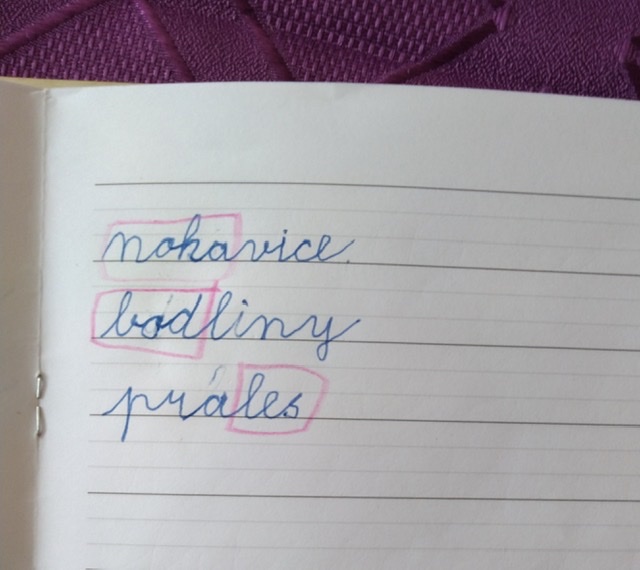 nohavice
bodliny
práles